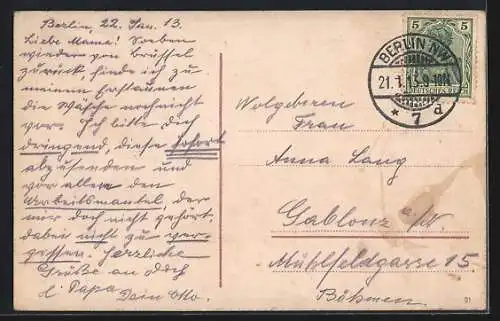 Berlin, 22. Jan. 13.
Liebe Mama! Soeben
wieder von Brüssel
zurück, finde ich zu
meinem Erstaunen
die Wäsche noch nicht
vor. Ich bitte Dich
dringend, diese sofort
abzusenden und
vor allem den
Arbeitsmantel, der
mir doch nicht gehört,
dabei nicht zu ver-
gessen. Herzliche
Grüße an Dich
& Papa
Dein Otto.
5 5
BERLIN N.W.
21.1.13.9-10N
* 7 d
Wolgeboren
Frau
Anna Lang
Gablonz a/N
Mühlfeldgasse 15.
Böhmen